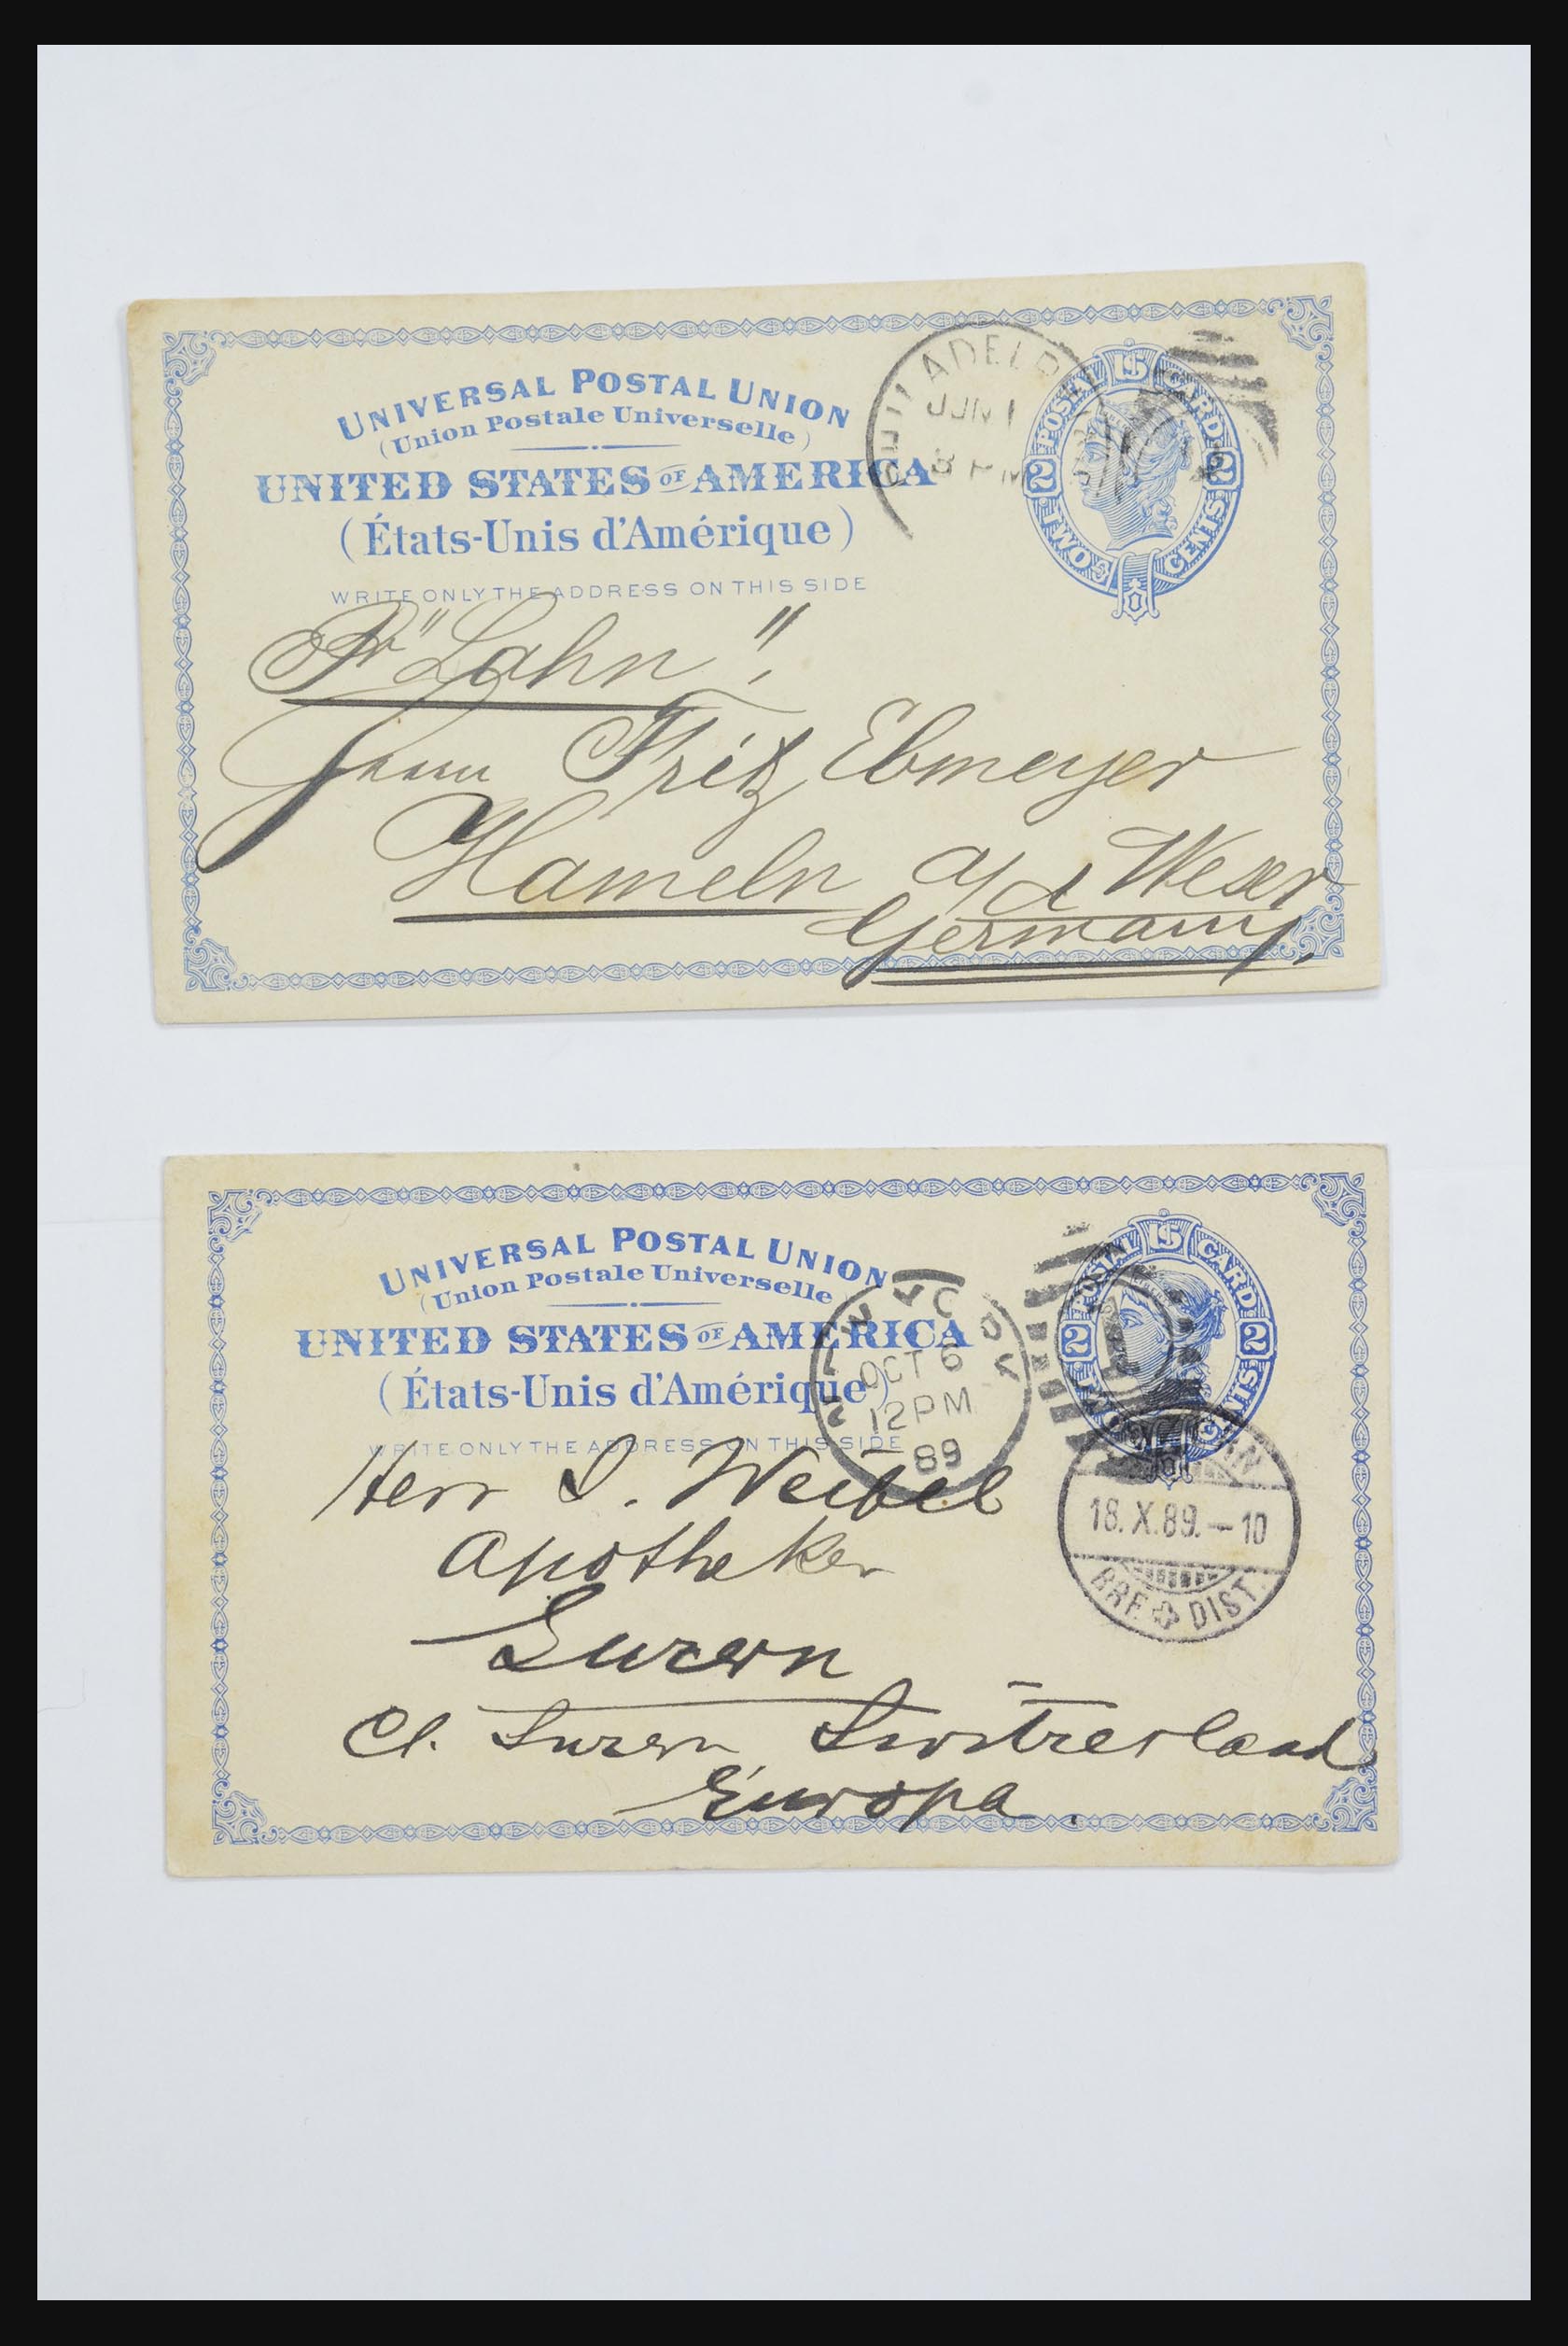 UNIVERSAL POSTAL UNION
(Union Postale Universelle)
UNITED STATES OF AMERICA
(États-Unis d'Amérique)
WRITE ONLY THE ADDRESS ON THIS SIDE
POSTAL CARD
US
2 2
TWO CENTS
PHILADELP
JUN 1
8 PM
Pr "Lahn".
Herrn Fritz Ebmeyer
Hameln a/d Weser
Germany.
UNIVERSAL POSTAL UNION
(Union Postale Universelle
UNITED STATES OF AMERICA
(États-Unis d'Amérique)
WRITE ONLY THE ADDRESS ON THIS SIDE
POSTAL CARD
US
2 2
CENTS
OCT 6
12 PM
89
18. X. 89. – 10
BRF. DIST.
Herr L. Weibel
Apotheker
Luzern
Ct. Luzern Switzerland
Europa.